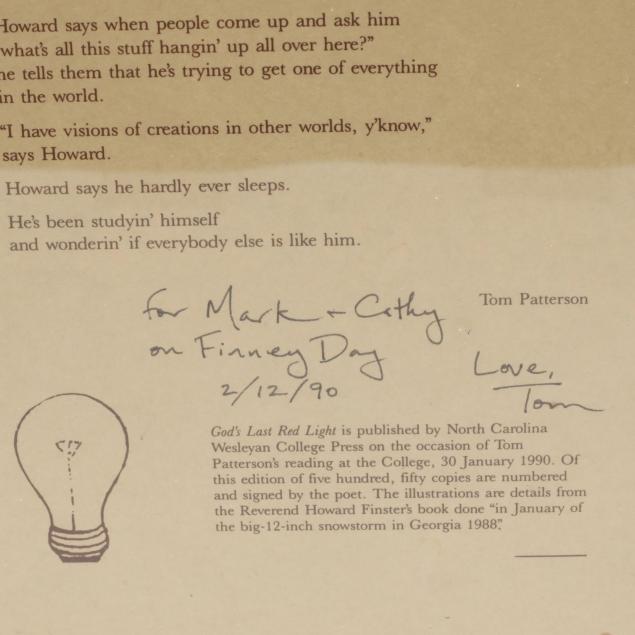 Howard says when people come up and ask him
what's all this stuff hangin' up all over here?"
he tells them that he's trying to get one of everything
in the world.
"I have visions of creations in other worlds, y'know,"
says Howard.
Howard says he hardly ever sleeps.
He's been studyin' himself
and wonderin' if everybody else is like him.
Tom Patterson
for Mark + Cathy
on Finney Day
2/12/90
Love,
Tom
God's Last Red Light is published by North Carolina
Wesleyan College Press on the occasion of Tom
Patterson's reading at the College, 30 January 1990. Of
this edition of five hundred, fifty copies are numbered
and signed by the poet. The illustrations are details from
the Reverend Howard Finster's book done "in January of
the big-12-inch snowstorm in Georgia 1988."